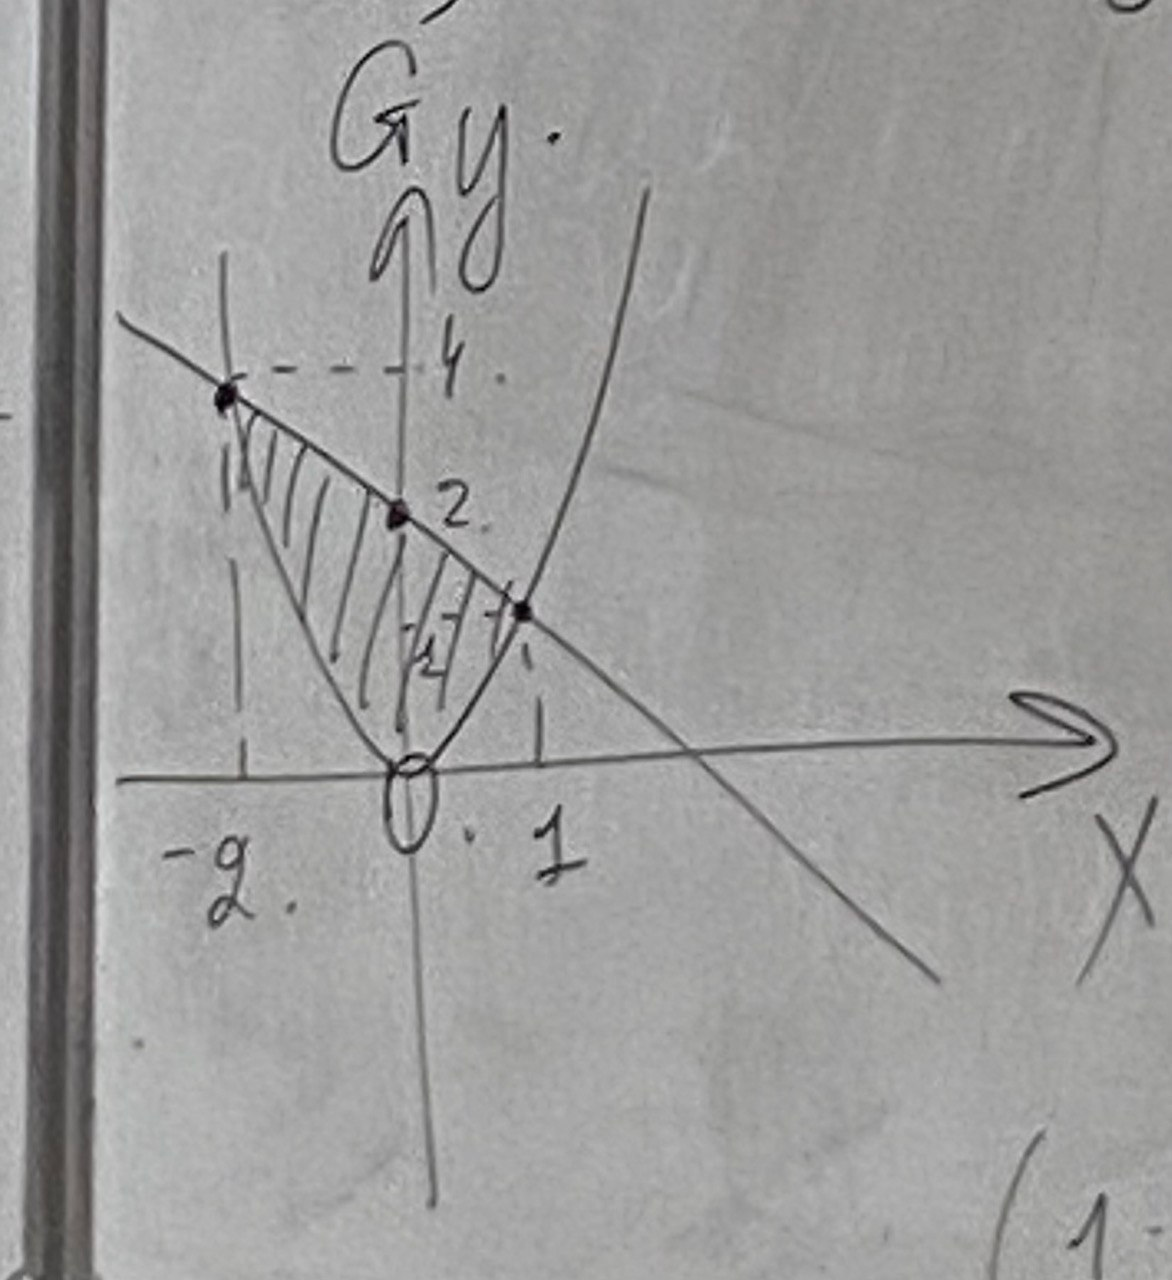 G y.
4.
2.
1
-2. 0. 1
X
(1-